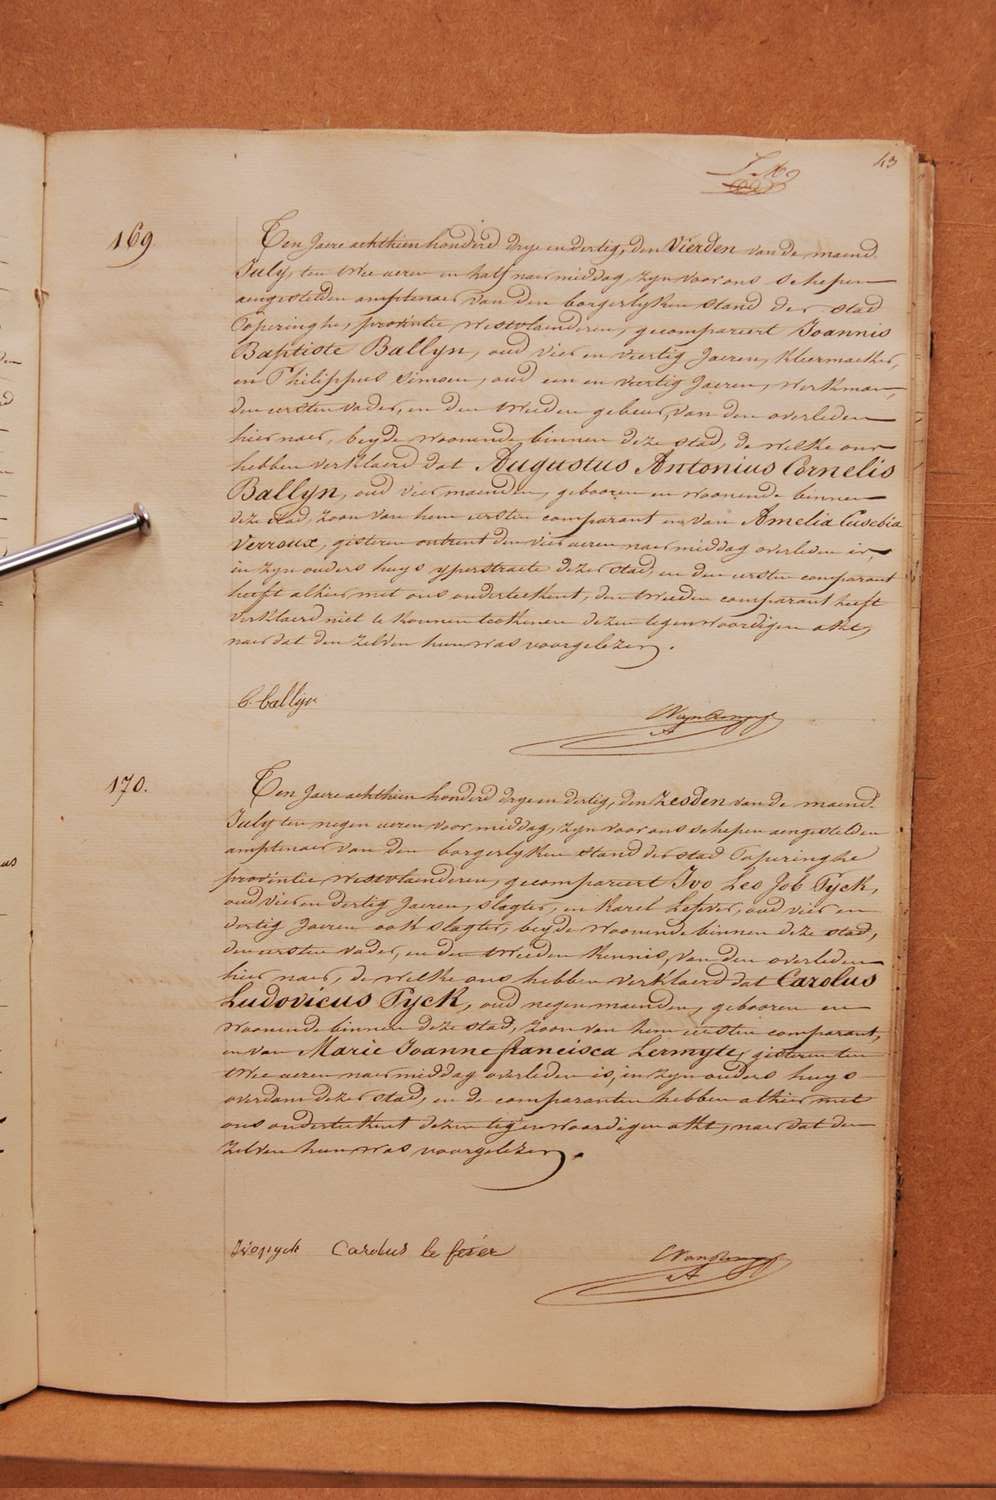 43
169.
Ten Jaere achthien honderd drye en dertig, den Vierden van de maend
July, ten twee ueren en half naer middag, zyn voor ons schepen
aengestelden amptenaer van den borgerlyken stand der stad
Poperinghe, provintie Westvlaenderen, gecompareert Joannis
Baptiste Ballyn, oud vier en veertig Jaeren, kleermaeker,
en Philippus Simoen, oud een en veertig Jaeren, werkman,
den eersten vader, en den tweeden gebeur, van den overleden
hier naer, beyde woonende binnen deze stad, de welke ons
hebben verklaerd dat Augustus Antonius Cornelis
Ballyn, oud vier maenden, gebooren en woonende binnen
deze stad, zoon van hem eersten comparant en van Amelia Eusebia
Verroux, gisteren ontrent den vier ueren naer middag overleden is,
in zyn ouders huys yperstraete dezer stad, en den eersten comparant
heeft alhier met ons onderteekent, den tweeden comparant heeft
verklaerd niet te konnen teekenen dezen tegenwoordigen akt,
naer dat den zelven hun was voorgelezen.
B. Ballyn
170.
Ten Jaere achthien honderd drye en dertig, den Zesden van de maend
July ten negen ueren voor middag, zyn voor ons schepen aengestelden
amptenaer van den borgerlyken stand der stad Poperinghe
provintie Westvlaenderen, gecompareert Ivo Leo Job Pyck,
oud vier en dertig Jaeren, slagter, en Karel Lefever, oud vier en
dertig Jaeren ook slagter, beyde woonende binnen deze stad,
den eersten vader, en den tweeden kennis, van den overleden
hier naer, de welke ons hebben verklaerd dat Carolus
Ludovicus Pyck, oud negen maenden, gebooren en
woonende binnen deze stad, zoon van hem eersten comparant,
en van Marie Joanne francisca Lermyte, gisteren ten
twee ueren naer middag overleden is, in zyn ouders huys
overdam dezer stad, en de comparanten hebben alhier met
ons onderteekent dezen tegenwoordigen akt, naer dat den
zelven hun was voorgelezen.
Ivo pyck Carolus le fever